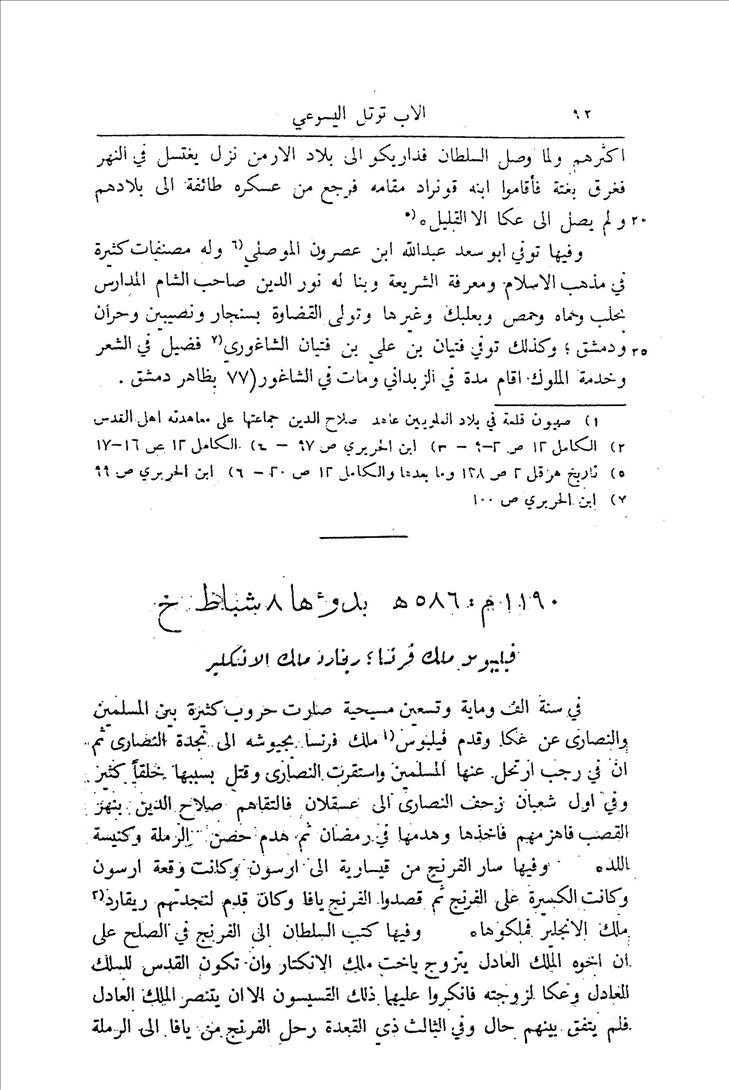 ٩٢ الاب توتل اليسوعي
اكثرهم ولما وصل السلطان فذاريكو الى بلاد الارمن نزل يغتسل في النهر
فغرق بغتة فأقاموا ابنه قونراد مقامه فرجع من عسكره طائفة الى بلادهم
٢٠ ولم يصل الى عكا الا القليل ٥(٥
وفيها توفي ابو سعد عبدالله ابن عصرون الموصلي(٦ وله مصنفات كثيرة
في مذهب الاسلام ومعرفة الشريعة وبنا له نور الدين صاحب الشام المدارس
بحلب وحماه وحمص وبعلبك وغيرها وتولى القضاوة بسنجار ونصيبين وحران
٢٥ ودمشق؛ وكذلك توفي فتيان بن علي بن فتيان الشاغوري(٧ فضيل في الشعر
وخدمة الملوك اقام مدة في الزبداني ومات في الشاغور (٧٧ بظاهر دمشق .
١) صهيون قلعة في بلاد العلويين عاهد صلاح الدين جماعتها على معاهدته اهل القدس
٢) الكامل ١٢ ص ٢-٩ – ٣) ابن الحريري ص ٩٧ – ٤) الكامل ١٢ ص ١٦-١٧
٥) تاريخ هرقل ٢ ص ١٢٨ وما بعدها والكامل ١٢ ص ٢٠ – ٦) ابن الحريري ص ٩٩
٧) ابن الحريري ص ١٠٠
١١٩٠ م = ٥٨٦ ه بدؤها ٨ شباط خ
فيليبوس ملك فرنسا؛ ريفارد ملك الانكلير
في سنة الف وماية وتسعين مسيحية صارت حروب كثيرة بين المسلمين
والنصارى عن عكا وقدم فيلبوس(١ ملك فرنسا بجيوشه الى نجدة النصارى ثم
ان في رجب ارتحل عنها المسلمين واستقرت النصارى وقتل بسببها خلقاً كثير
وفي اول شعبان زحف النصارى الى عسقلان فالتقاهم صلاح الدين بنهر
القصب فاهزمهم فاخذها وهدمها في رمضان ثم هدم حصن الرملة وكنيسة
اللد٥ وفيها سار الفرنج من قيسارية الى ارسون وكانت وقعة ارسون
وكانت الكسرة على الفرنج ثم قصدوا الفرنج يافا وكان قدم لنجدتهم ريقارد(٢
ملك الانجلير فملكوها٥ وفيها كتب السلطان الى الفرنج في الصلح على
ان اخوه الملك العادل يتزوج باخت ملك الانكتار وان تكون القدس للملك
العادل وعكا لزوجته فانكروا عليها ذلك القسيسون الا ان يتنصر الملك العادل
فلم يتفق بينهم حال وفي الثالث ذي القعدة رحل الفرنج من يافا الى الرملة